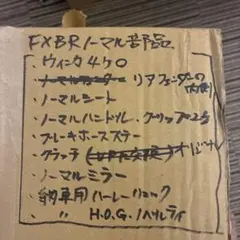 FXBRノーマル部品
・ウィンカ4ケ0
・ノーマルフェンダー リアフェンダーの内側
・ノーマルシート
・ノーマルハンドル、グリップ2ケ
・ブレーキホースステー
・クラッチ
・ノーマルミラー
・専用ハーレーリュック
・〃 H.O.G.ノベルティ